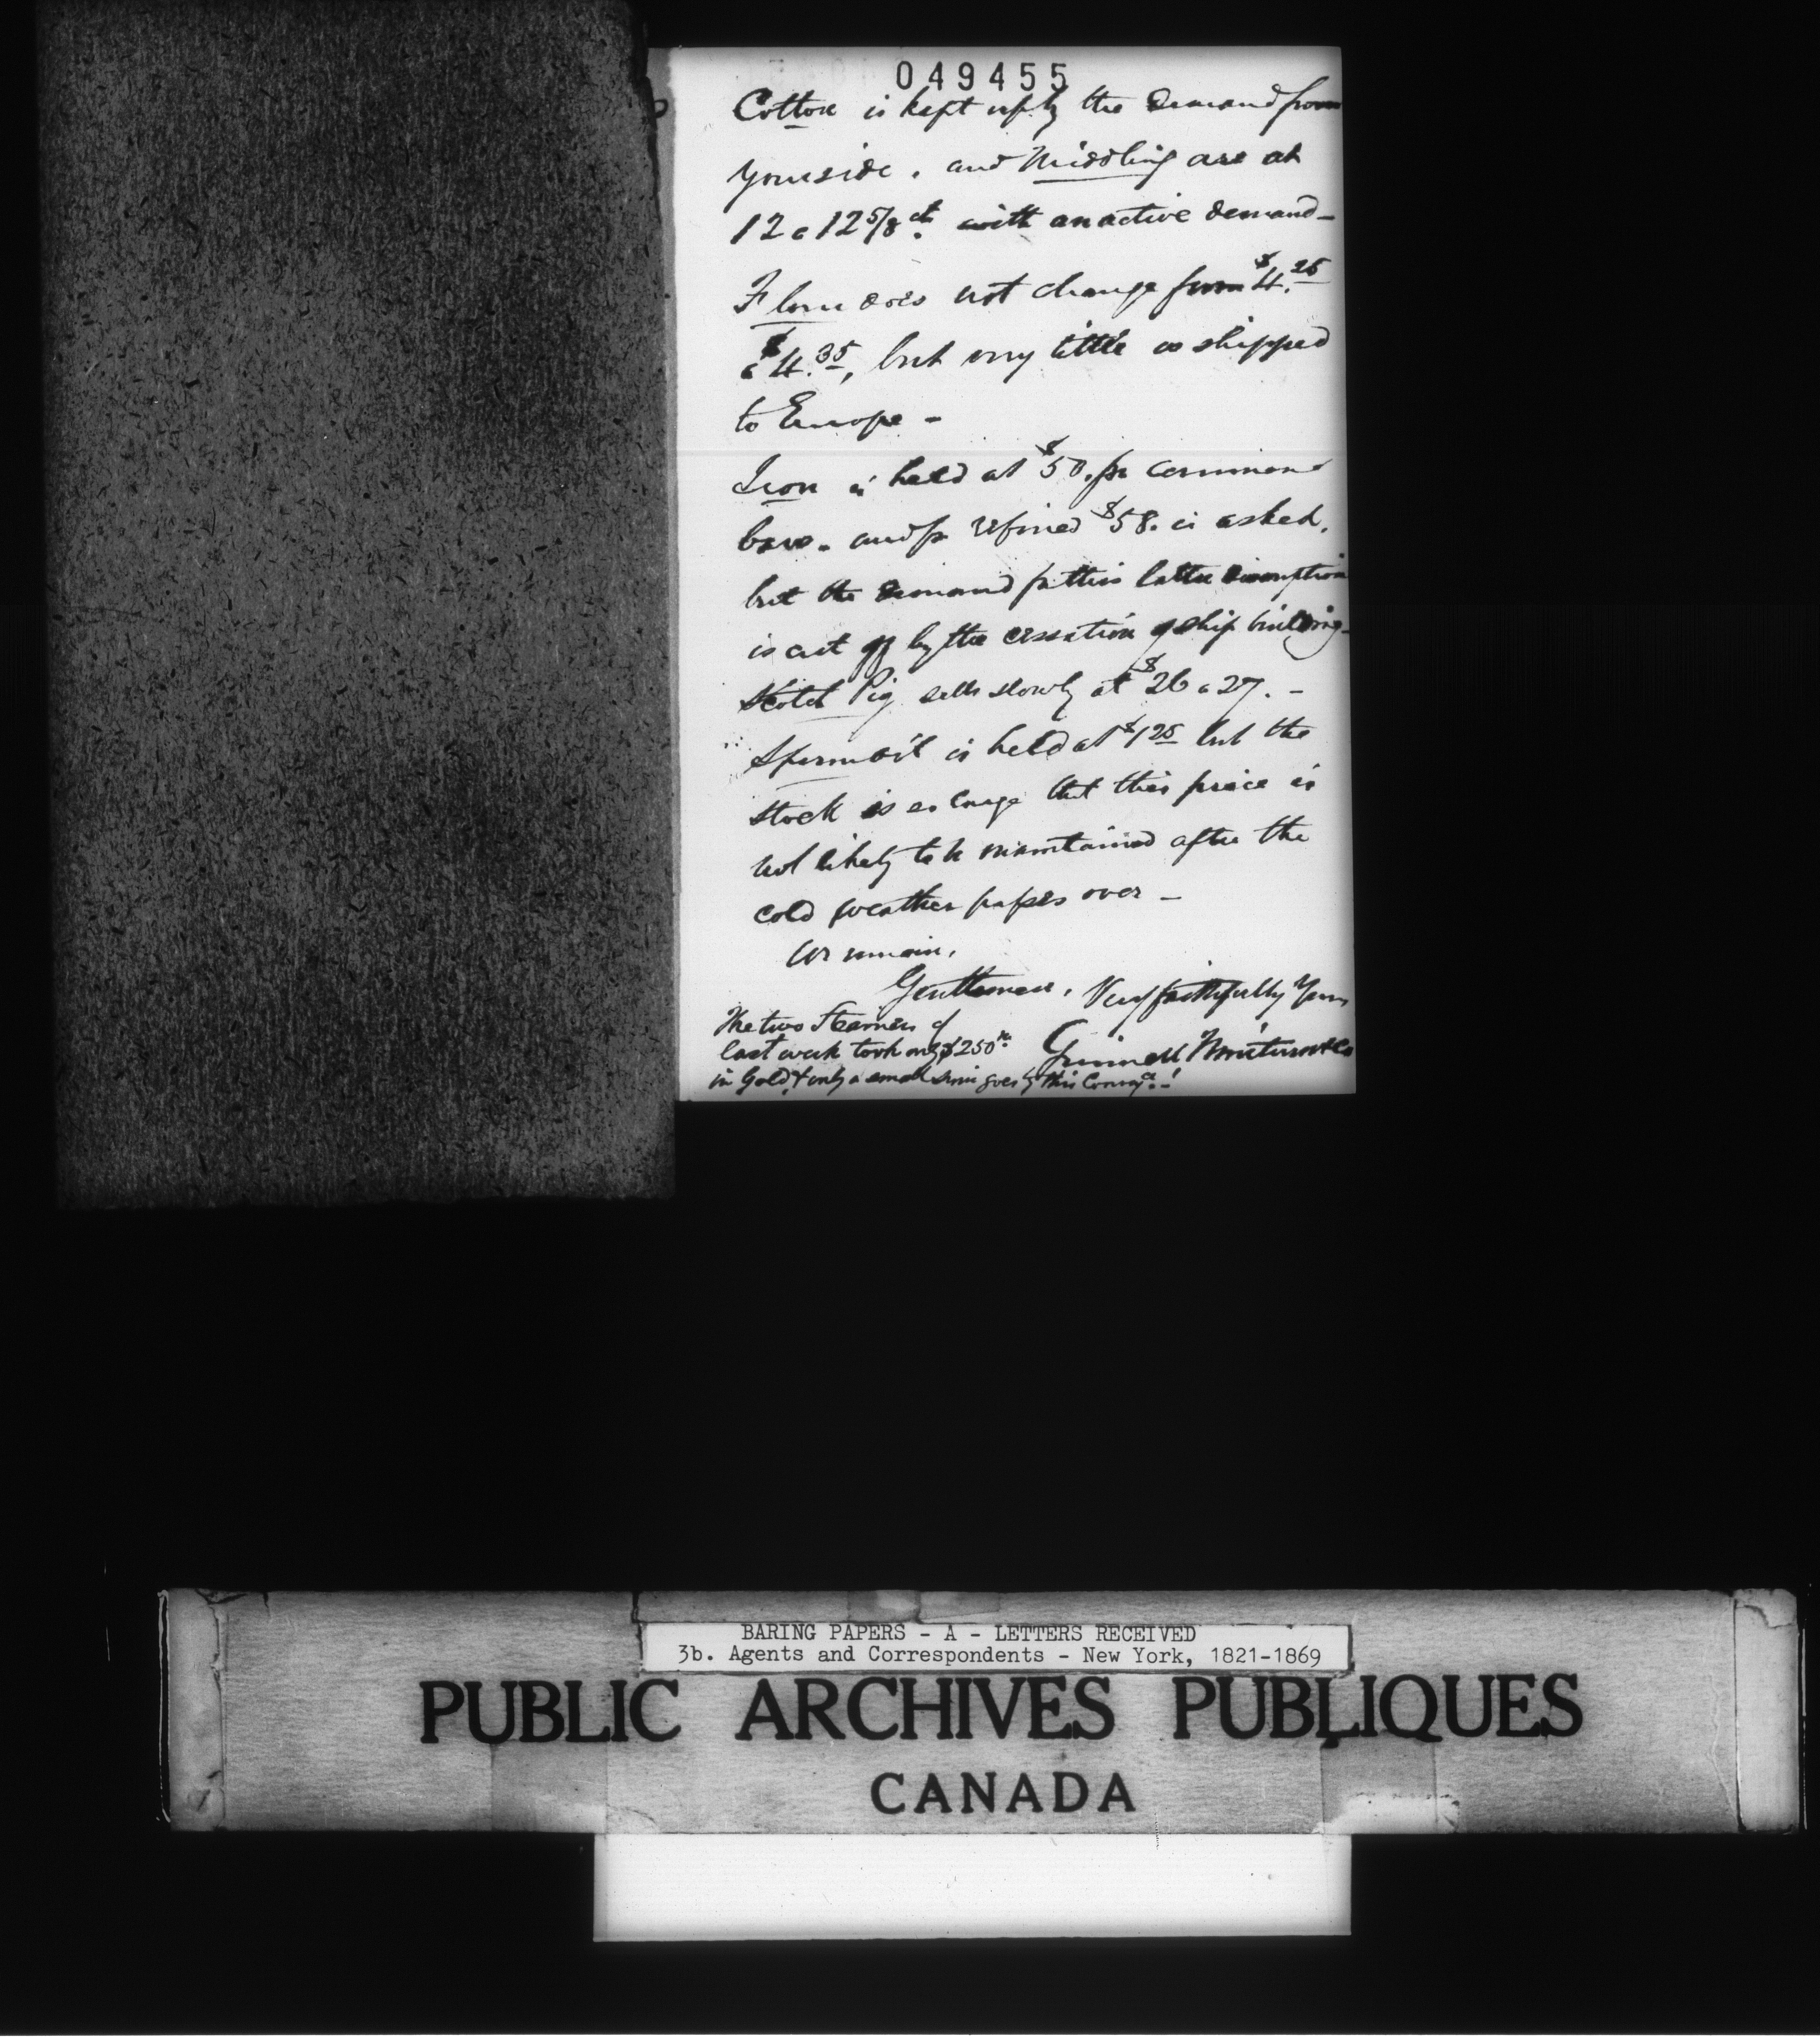 049455
Cotton is kept up by the demand from
your side, and Middling are at
12 a 12 5/8 cts with an active demand -
Flour does not change from $4.25
a $4.35, but very little is shipped
to Europe -
Iron is held at $50. for common
bars - and for refined $58. is asked,
but the demand for this latter description
is cut off by the cessation of ship building -
Scotch Pig sells slowly at $26 a 27. -
Sperm oil is held at $1.25 but the
stock is so large that this price is
not likely to be maintained after the
cold weather passes over -
We remain,
Gentlemen, Very faithfully Yours
Grinnell Minturn & Co
The two Steamers of
last week took only $250 m
in Gold, & only a small sum goes by this Convey.ce !
BARING PAPERS - A - LETTERS RECEIVED
3b. Agents and Correspondents - New York, 1821-1869
PUBLIC ARCHIVES PUBLIQUES
CANADA